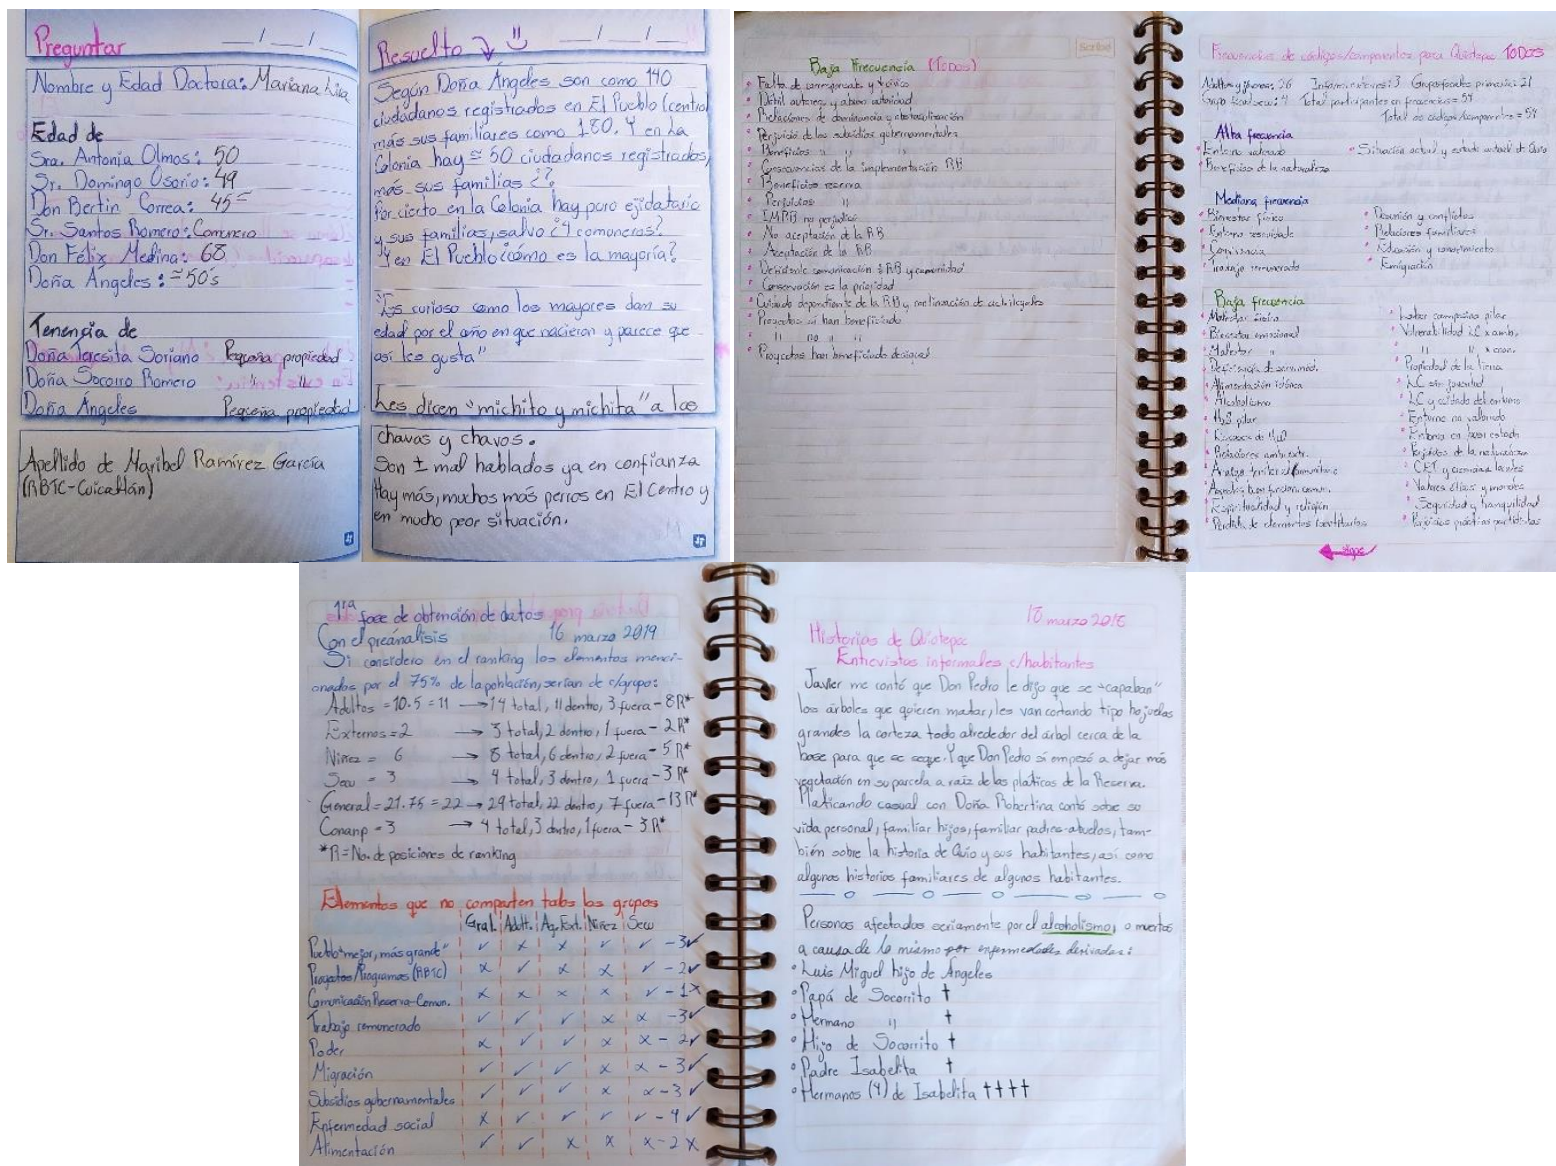 Preguntar __/__/__
Nombre y Edad Doctora: Mariana Lira
Edad de
Sra. Antonia Olmos: 50
Sr. Domingo Osorio: 49
Don Bertin Correa: 45
Sr. Santos Romero: Comunero
Don Félix Medina: 68
Doña Ángeles: ≈50's
Tenencia de
Doña Teresita Soriano Pequeña propiedad
Doña Socorro Romero " "
Doña Ángeles Pequeña propiedad
Apellido de Maribel Ramírez García
(RBTC-Cuicatlán)
Resuelto __/__/__
Según Doña Ángeles son como 140
ciudadanos registrados en El Pueblo (centro)
más sus familiares como 180. Y en La
Colonia hay ≈ 50 ciudadanos registrados,
más sus familias ¿?
Por cierto en la Colonia hay puro ejidatario
y sus familias, salvo ¿4 comuneros?
Y en El Pueblo ¿cómo es la mayoría?
"Es curioso como los mayores dan su
edad por el año en que nacieron y parece que
así les gusta"
Les dicen "michito y michita" a los
chavas y chavos.
Son ± mal hablados ya en confianza
Hay más, muchos más perros en El Centro y
en mucho peor situación.
Scribe
Baja Frecuencia (TODOS)
Débil autores y abuso autoridad
Perjuicio de los subsidios gubernamentales
Beneficios " " "
Consecuencias de la implementación RB
Beneficios reserva
Perjuicios "
No aceptación de la RB
Aceptación de la RB
Deficiente comunicación RB y comunidad
Conservación es la prioridad
Proyectos sí han beneficiado
" no " "
Proyectos han beneficiado desigual
Frecuencias de códigos/componentes para Quiotepec TODOS
Total de códigos/componentes = 54
Alta frecuencia
Entorno valorado
Beneficios de la naturaleza
Situación actual y estado actual de Quio
Mediana frecuencia
Bienestar físico
Conciencia
Trabajo remunerado
Desunión y conflictos
Relaciones familiares
Educación y conocimiento
Emigración
Baja frecuencia
Malestar físico
Bienestar emocional
Malestar "
Alimentación idónea
Alcoholismo
Relaciones ambient.
Espiritualidad y religión
Pérdida de elementos identitarios
Labor campesina pilar
Propiedad de la tierra
LC sin juventud
LC y cuidado del entorno
Entorno no valorado
Entorno en buen estado
Perjuicios de la naturaleza
Valores éticos y morales
Seguridad y tranquilidad
Perjuicios prácticas partidistas
sigue
1ra fase de obtención de datos
Con el preánalisis 16 marzo 2019
Si considero en el ranking los elementos menci-
onados por el 75% de la población, serían de c/grupo:
Adultos = 10.5 = 11 → 14 total, 11 dentro, 3 fuera - 8 R*
Externos = 2 → 3 total, 2 dentro, 1 fuera - 2 R*
Niñez = 6 → 8 total, 6 dentro, 2 fuera - 5 R*
Secu = 3 → 4 total, 3 dentro, 1 fuera - 3 R*
General = 21.75 = 22 → 29 total, 22 dentro, 7 fuera - 13 R*
Conanp = 3 → 4 total, 3 dentro, 1 fuera - 3 R*
*R = No. de posiciones de ranking
Elementos que no comparten todos los grupos
Gral. Adult. Ag. Ext. Niñez Secu
Pueblo "mejor, más grande" ✓ x x ✓ ✓ - 3 ✓
Proyectos/Programas (RBTC) x ✓ x x ✓ - 2 ✓
Comunicación Reserva-Comun. x x x x ✓ - 1 x
Trabajo remunerado ✓ ✓ ✓ x x - 3 ✓
Poder x ✓ ✓ x x - 2 ✓
Migración ✓ ✓ ✓ x x - 3 ✓
Subsidios gubernamentales ✓ ✓ ✓ x x - 3 ✓
Enfermedad social x ✓ ✓ ✓ ✓ - 4 ✓
Alimentación ✓ ✓ x x x - 2 x
18 marzo 2018
Historias de Quiotepec
Entrevistas informales c/habitantes
Javier me contó que Don Pedro le dijo que se "capaban"
los árboles que quieren matar, les van cortando tipo hojuelas
grandes la corteza todo alrededor del árbol cerca de la
base para que se seque. Y que Don Pedro sí empezó a dejar más
vegetación en su parcela a raíz de las pláticas de la Reserva.
Platicando casual con Doña Robertina contó sobre su
vida personal, familiar hijos, familiar padres-abuelos, tam-
bién sobre la historia de Quio y sus habitantes, así como
algunas historias familiares de algunos habitantes.
Personas afectadas seriamente por el alcoholismo, o muertos
a causa de lo mismo por enfermedades derivadas:
° Luis Miguel hijo de Ángeles
° Papá de Socorrito †
° Hermano " †
° Hijo de Socorrito †
° Padre Isabelita †
° Hermanos (4) de Isabelita ††††